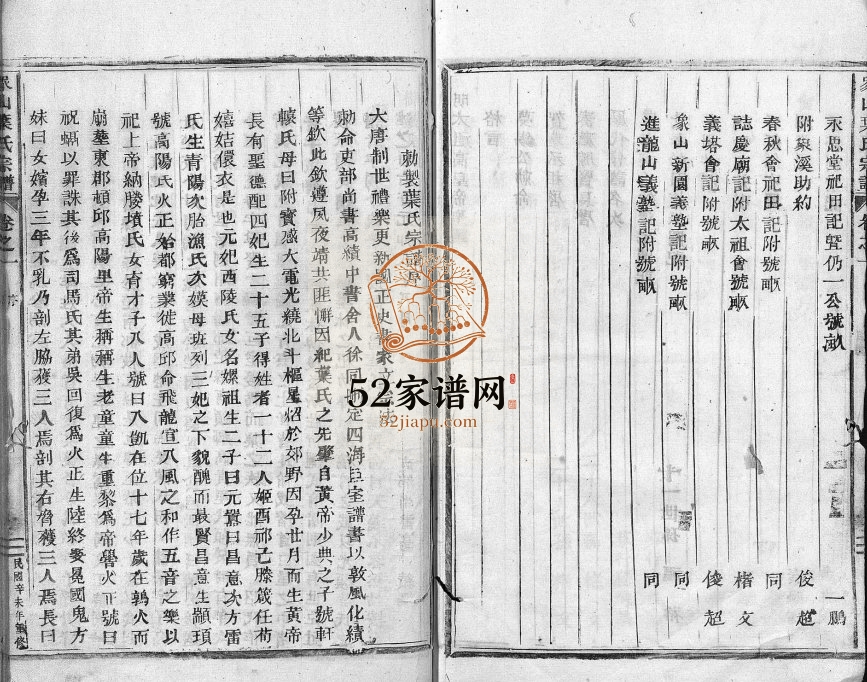 永思堂祀田記暨仍一公號畝 一鵬
附泉溪助約 俊超
春秋會祀田記附號畝 同
誌慶廟記附太祖會號畝 楷文
義塔會記附號畝 俊超
象山新園義塾記附號畝 同
進龍山義塾記附號畝 同
象山葉氏宗譜 卷之一 序
勅製葉氏宗譜序
大唐制世禮樂更新
勅命吏部尚書高績中書舍人徐同 定四海巨室譜書以敦風化績
等欽此欽遵夙夜靖共匪懈因紀葉氏之先肇自黃帝少典之子號軒
轅氏母曰附寶感大電光繞北斗樞星炤於郊野因孕廿月而生黃帝
長有聖德配四妃生二十五子得姓者一十二人姬酉祁己滕箴任荀
嬉姞儇衣是也元妃西陵氏女名嫘祖生二子曰元囂曰昌意次方雷
氏生青陽次胎漁氏次嫫母班列三妃之下貌醜而最賢昌意生顓頊
號高陽氏火正始都窮桑徙高邱命飛龍宣八風之和作五音之樂以
祀上帝納勝墳氏女育才子八人號曰八凱在位十七年歲在鶉火而
崩塟東郡頓邱高陽里帝生稱稱生老童童生重黎爲帝嚳火正號曰
祝螎以罪誅其後爲司馬氏其弟吳回復爲火正生陸終娶冕國鬼方
妹曰女嬪孕三年不乳乃剖左脇獲三人焉剖其右脅獲三人焉長曰
民國辛未年重修
52家谱网
52jiapu.com